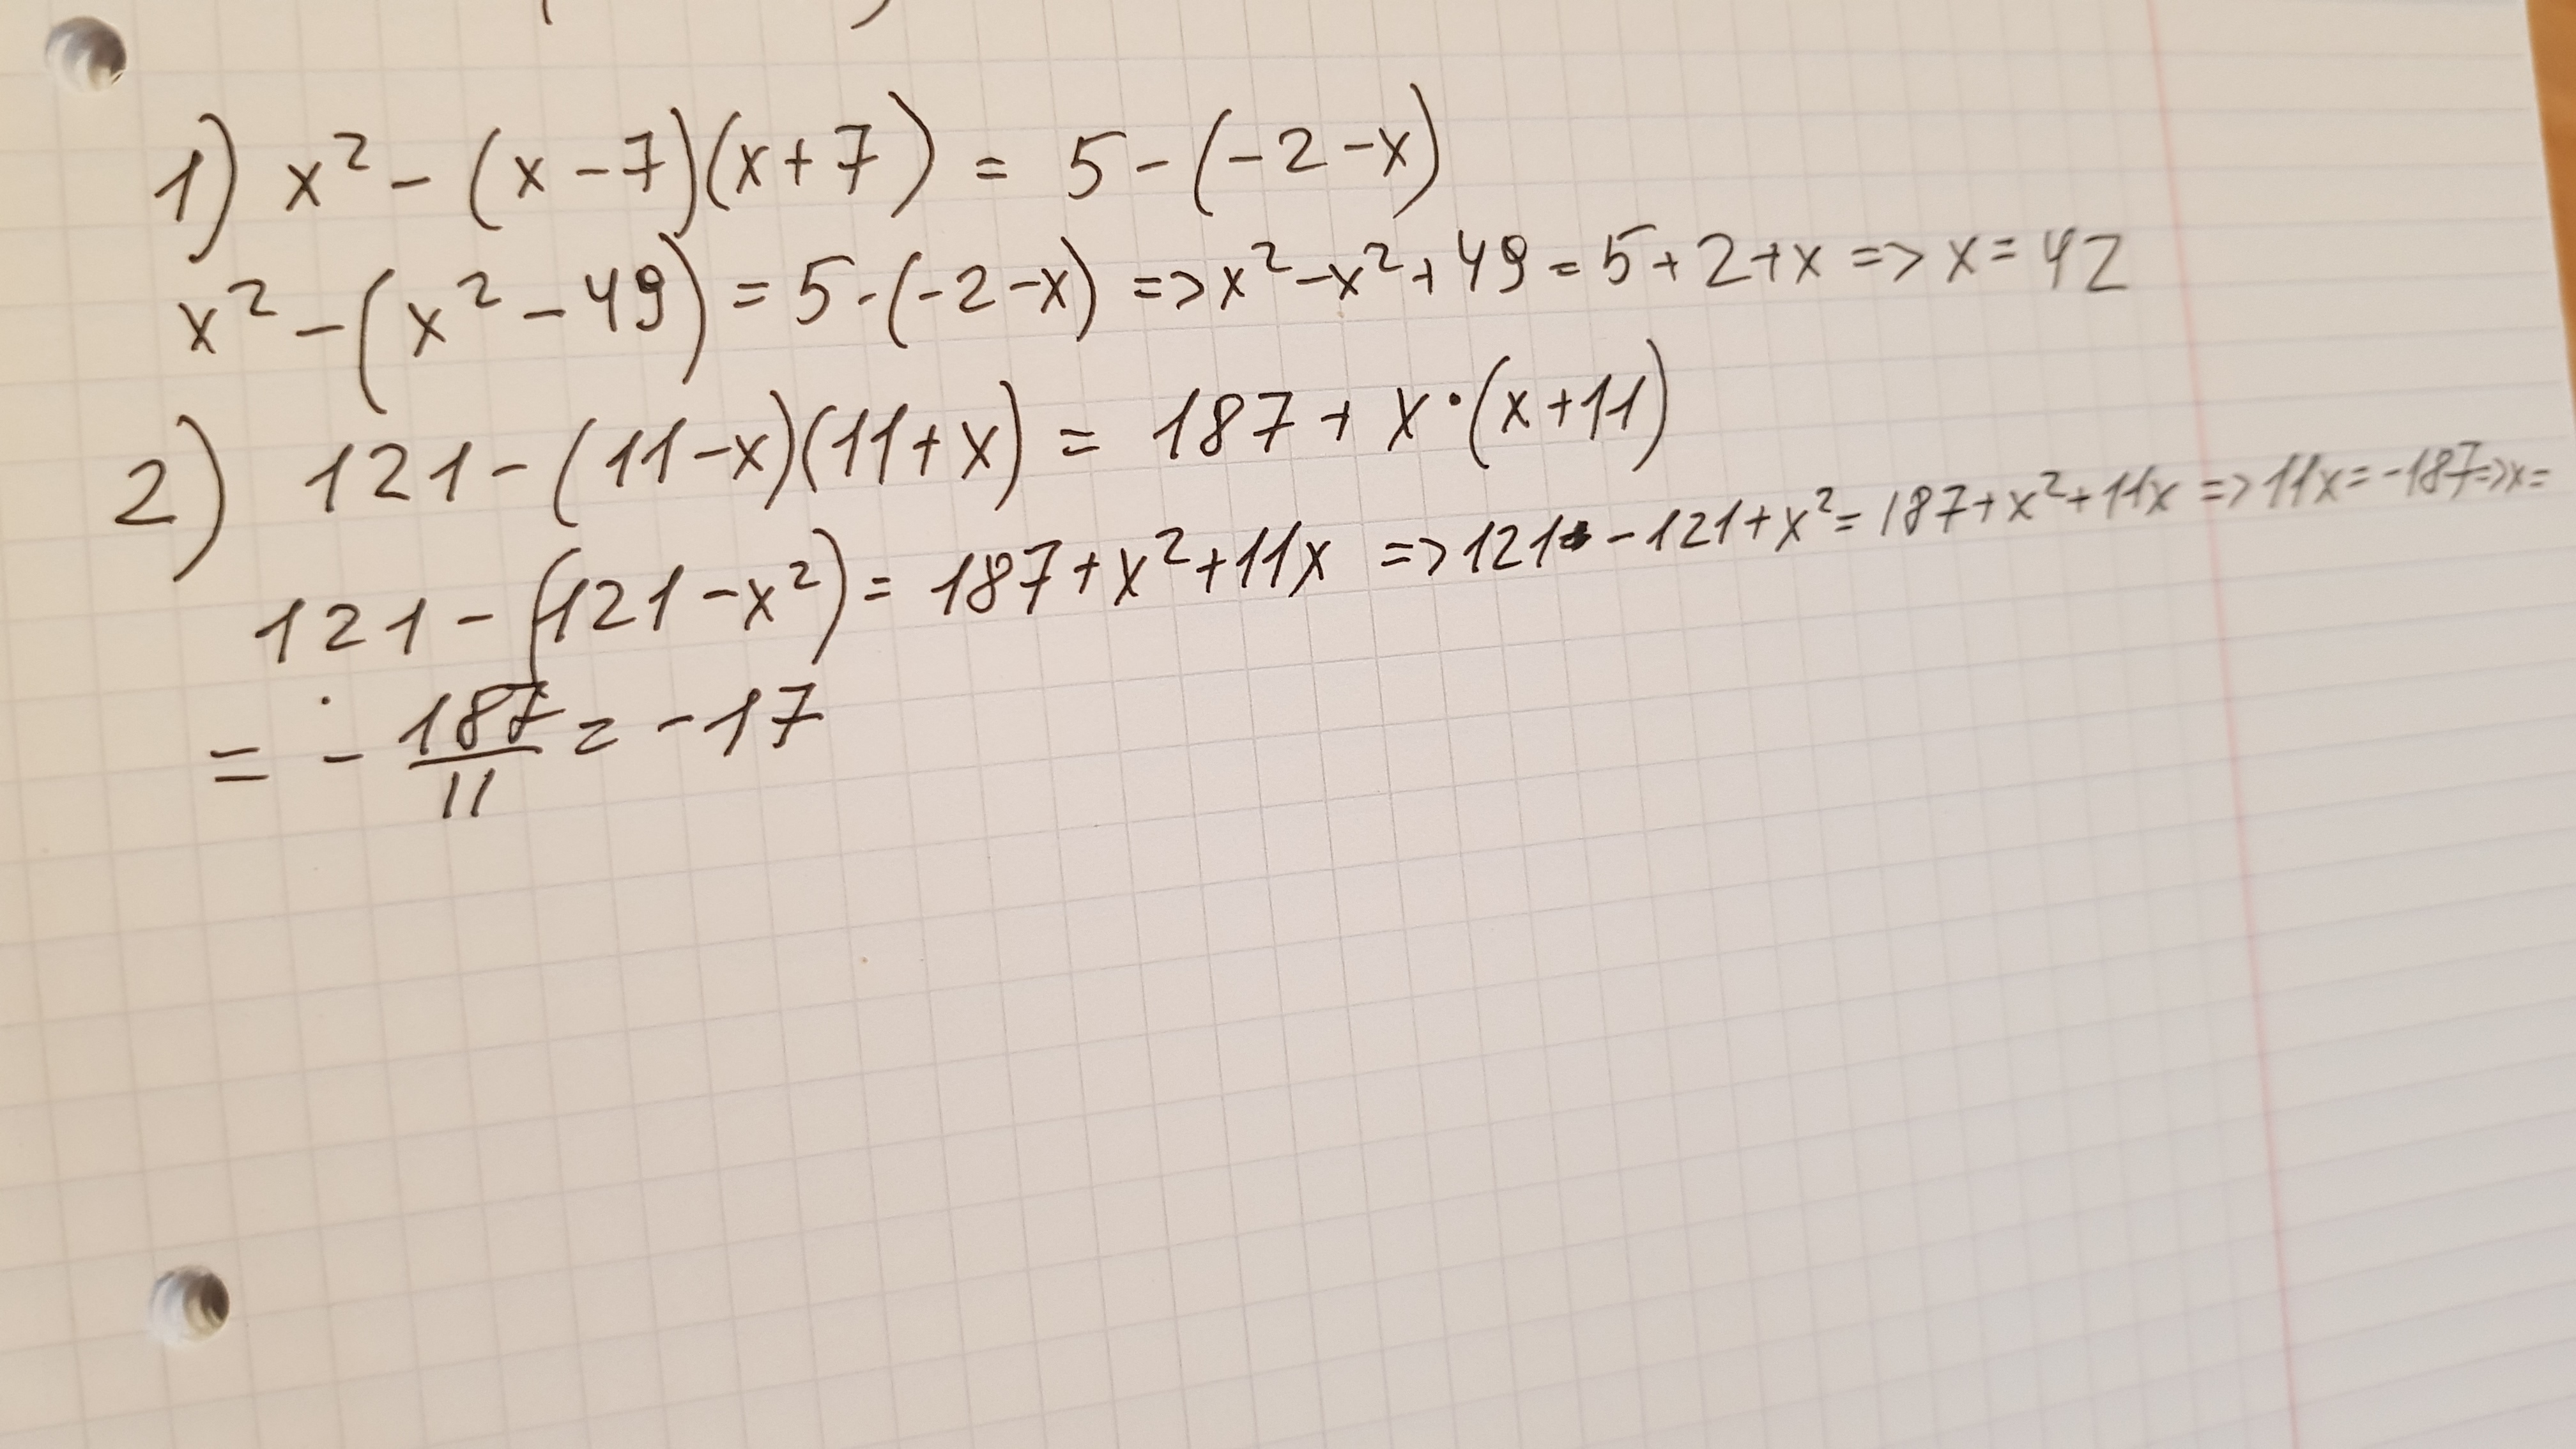 1) x² - (x - 7)(x + 7) = 5 - (-2 - x)
x² - (x² - 49) = 5 - (-2 - x) => x² - x² + 49 = 5 + 2 + x => x = 42
2) 121 - (11 - x)(11 + x) = 187 + x · (x + 11)
121 - (121 - x²) = 187 + x² + 11x => 121 - 121 + x² = 187 + x² + 11x => 11x = -187 => x =
= - 187/11 = -17